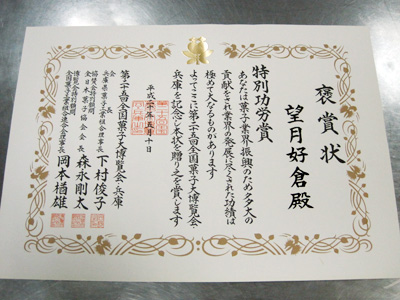 褒賞状
望月好倉殿
特別功労賞
あなたは菓子業界振興のため多大の
貢献をされ業界の発展に尽された功績は
極めて大なるものがあります
よってここに第二十五回全国菓子大博覧会
兵庫を記念し本状を贈り之を賞します
平成二十年五月十日
第二十五回全国菓子大博覧会・兵庫
会長
兵庫県菓子工業組合理事長 下村俊子
協賛会特別顧問
全日本菓子協会会長 森永剛太
博覧会特別顧問
全国菓子工業組合連合会理事長 岡本楢雄